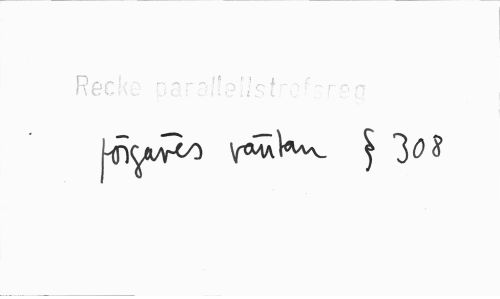 Recke parallellstrofsreg
förgävēs vāntan § 308